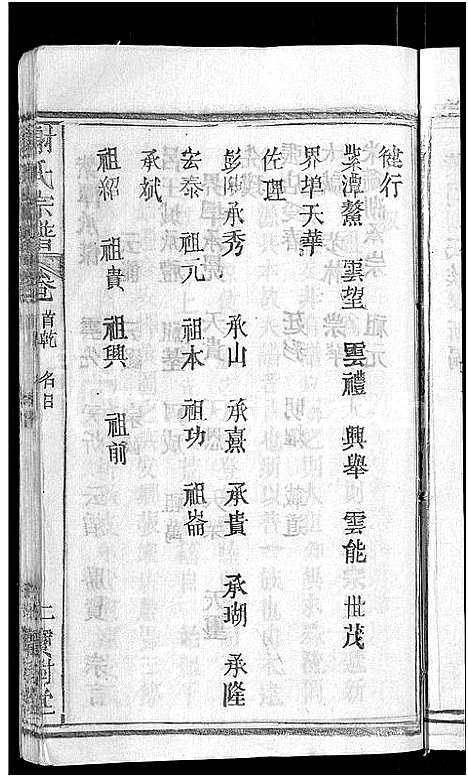 健行
紫潭鰲 雲望 雲禮 興舉 雲能 世茂
界埠天華
佐理
彭 承秀 承山 承熹 承貴 承瑚 承隆
宏泰 祖元 祖本 祖功 祖崙
承斌
祖紹 祖貴 祖興 祖前
謝氏宗譜 卷首乾 名目 寶樹堂